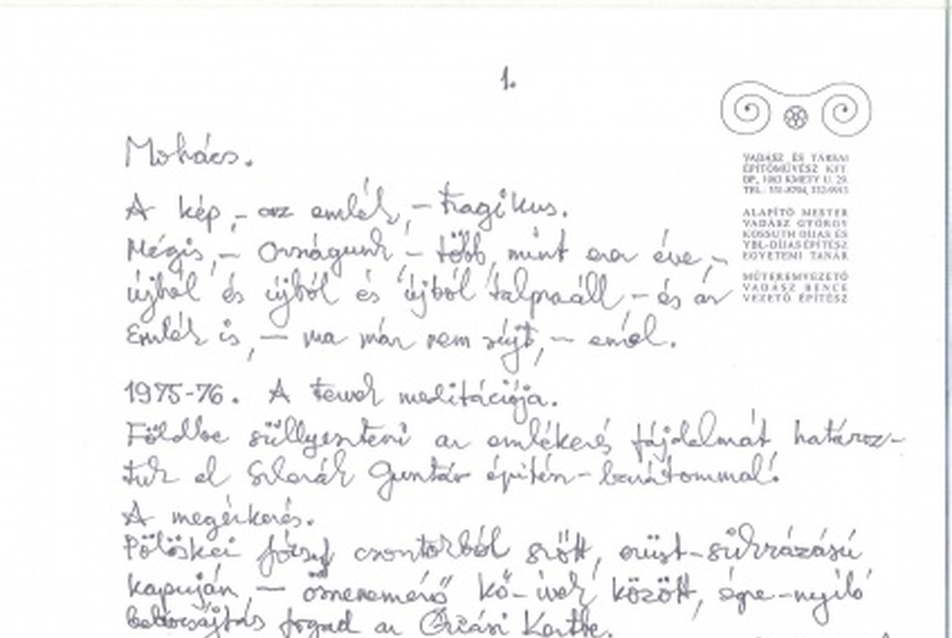 1.
VADÁSZ ÉS TÁRSAI
ÉPÍTŐMŰVÉSZ KFT.
BP., 1063 KMETY U. 29.
TEL.: 331-8704, 332-9913
ALAPÍTÓ MESTER
VADÁSZ GYÖRGY
KOSSUTH DÍJAS ÉS
YBL-DÍJAS ÉPÍTÉSZ
EGYETEMI TANÁR
MŰTEREMVEZETŐ
VADÁSZ BENCE
VEZETŐ ÉPÍTÉSZ
Mohács.
A kép, – az emlék, – tragikus.
Mégis, – Országunk – több, mint ezer éve, –
újból és újból és újból talpraáll – és az
Emlék is, – ma már nem sújt, – emel.
1975-76. A tervek meditációja.
Földbe süllyeszteni az emlékezés fájdalmát határoz-
tuk el Gusztáv építész-barátommal.
A megérkezés.
Pölöskei József csontokból szőtt, ezüst-szikrázású
kapuján, – kő-ívek között, égre-nyíló
fogad az Kertbe.